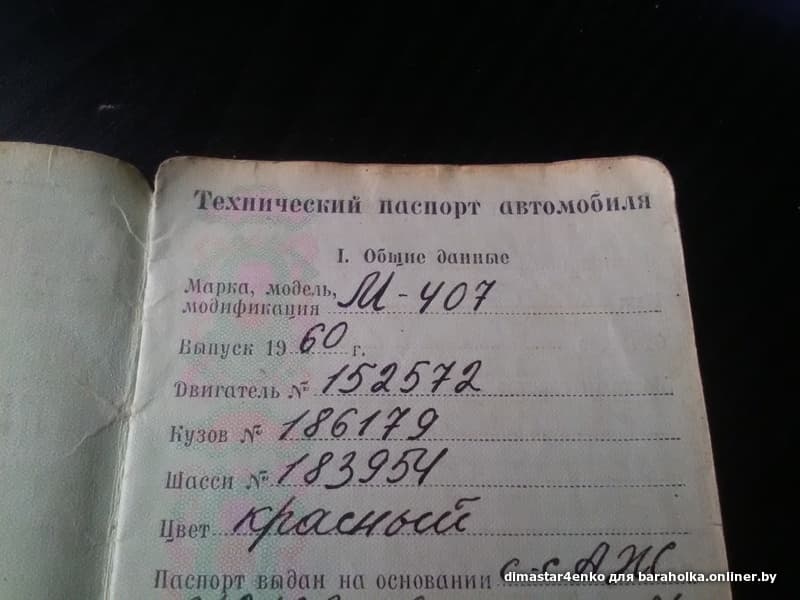 Технический паспорт автомобиля
I. Общие данные
Марка, модель,
модификация М-407
Выпуск 1960 г.
Двигатель № 152572
Кузов № 186179
Шасси № 183954
Цвет красный
Паспорт выдан на основании с-с
dimastar4enko для baraholka.onliner.by